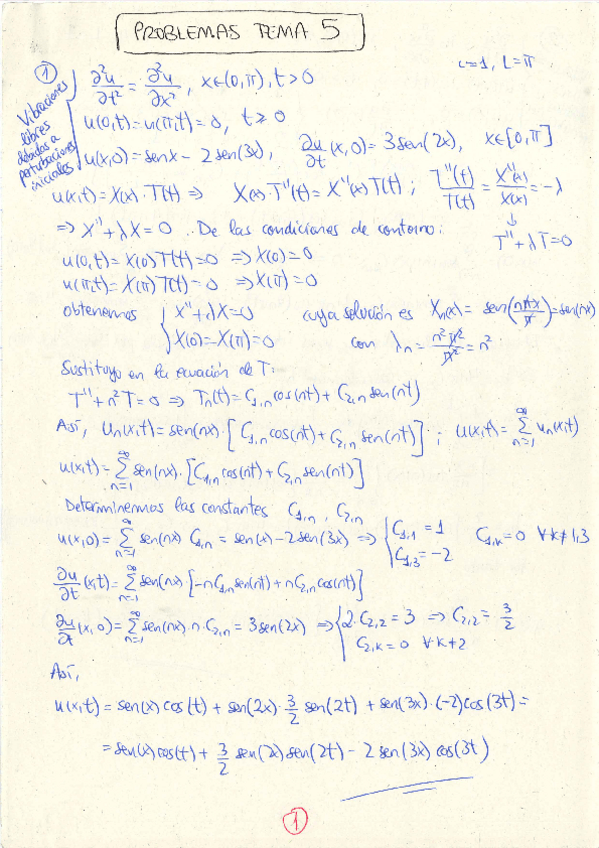 PROBLEMAS TEMA 5
① ∂²u/∂t² = ∂²u/∂x², x∈(0,π), t>0
c=1, L=π
Vibraciones libres debidas a perturbaciones iniciales
u(0,t)=u(π,t)=0, t≥0
u(x,0)=senx-2sen(3x), ∂u/∂t(x,0)=3sen(2x), x∈[0,π]
u(x,t)=X(x)·T(t) ⇒ X(x)·T''(t)=X''(x)T(t); T''(t)/T(t)=X''(x)/X(x)=-λ
⇒ X''+λX=0. De las condiciones de contorno:
↓
T''+λT=0
u(0,t)=X(0)T(t)=0 ⇒X(0)=0
u(π,t)=X(π)T(t)=0 ⇒X(π)=0
obtenemos { X''+λX=0 cuya solución es Xn(x)= sen(nπx/π)=sen(nx)
X(0)=X(π)=0 con λn=n²π²/π²=n²
Sustituyo en la ecuación de T:
T''+n²T=0 ⇒ Tn(t)=C1,n cos(nt)+C2,n sen(nt)
Así, un(x,t)=sen(nx)·[C1,n cos(nt)+C2,n sen(nt)]; u(x,t)=∑_{n=1}^{∞} un(x,t)
u(x,t)=∑_{n=1}^{∞} sen(nx)·[C1,n cos(nt)+C2,n sen(nt)]
Determinemos las constantes C1,n, C2,n
u(x,0)=∑_{n=1}^{∞} sen(nx) C1,n = sen(x)-2sen(3x) ⇒ { C1,1=1
C1,3=-2
C1,k=0 ∀k≠1,3
∂u/∂t(x,t)=∑_{n=1}^{∞} sen(nx)·[-nC1,n sen(nt)+nC2,n cos(nt)]
∂u/∂t(x,0)=∑_{n=1}^{∞} sen(nx)·n·C2,n=3sen(2x) ⇒ { 2·C2,2=3 ⇒ C2,2=3/2
C2,k=0 ∀k≠2
Así,
u(x,t)=sen(x)cos(t)+sen(2x)·3/2 sen(2t)+sen(3x)·(-2)cos(3t)=
=sen(x)cos(t)+3/2 sen(2x)sen(2t)-2sen(3x)cos(3t)
①